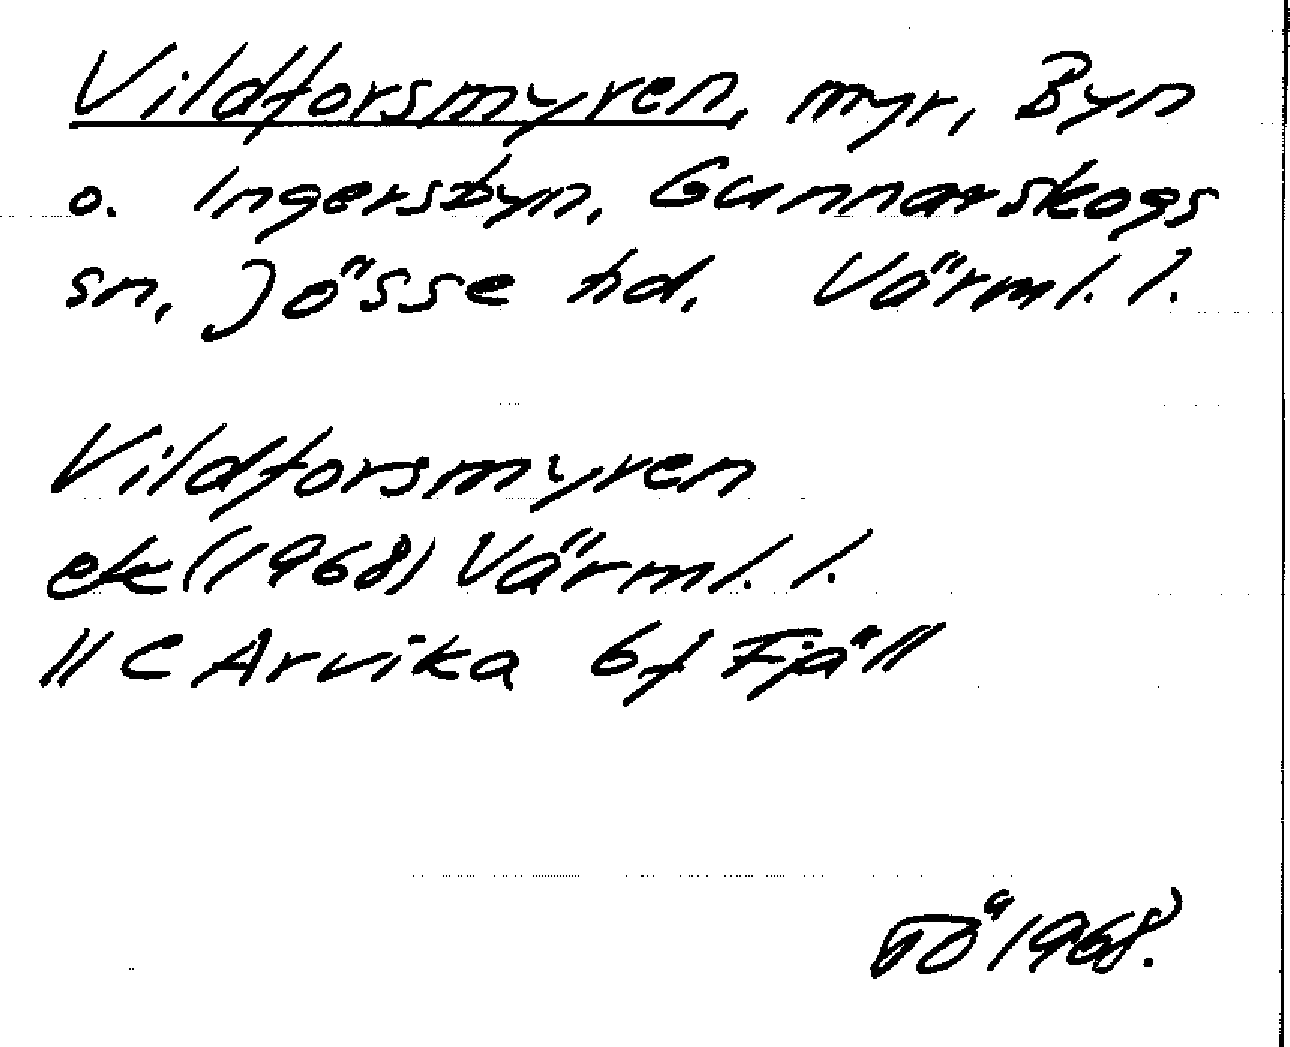 Vildforsmyren, myr, Byn
o. Ingersbyn, Gunnarskogs
sn, Jösse hd, Värml. l.
Vildforsmyren
ek (1968) Värml. l.
11 C Arvika 6f Fjäll
TÖ 1968.